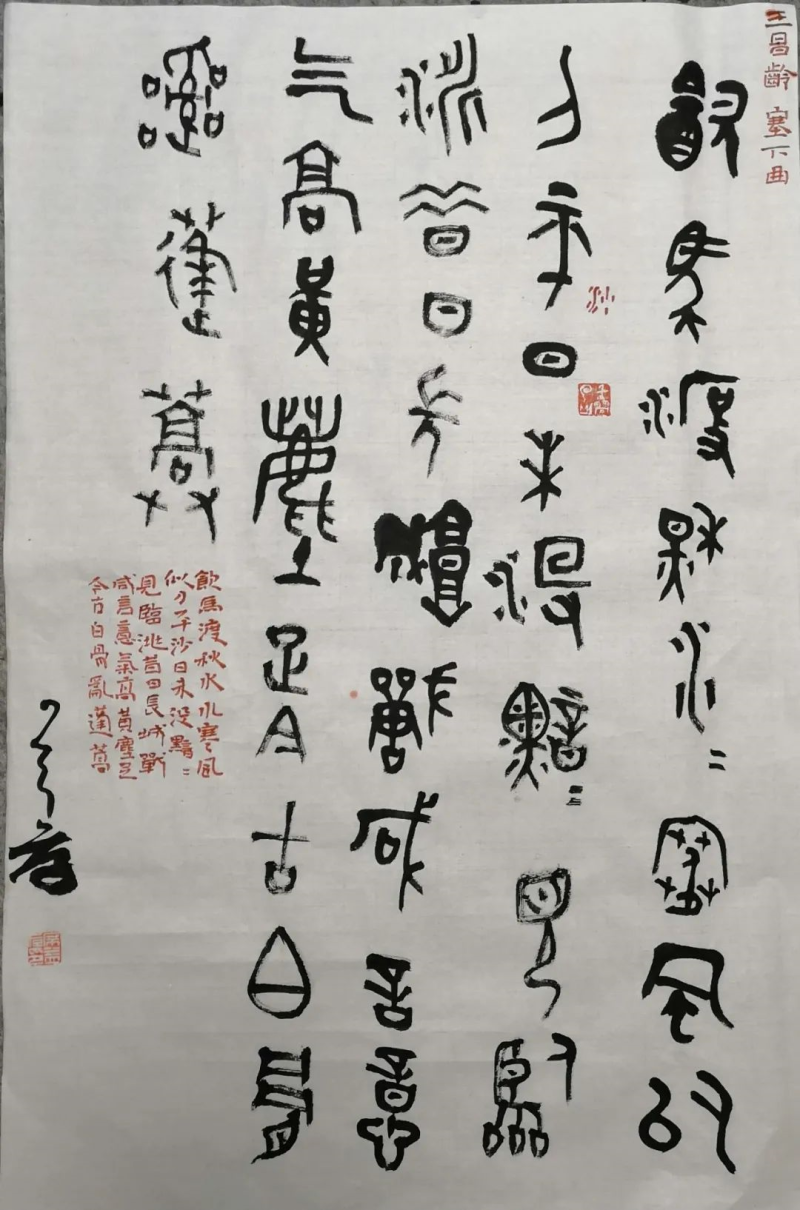 王昌齡 塞下曲
飲馬渡秋水〻寒風似
刀平日未沒黯〻見臨
沙
洮昔日長城戰咸言意
气高黃塵足今古白骨
亂蓬蒿
飲馬渡秋水水寒風
似刀平沙日未没黯〻
見臨洮昔日長城戰
咸言意氣高黄塵足
今古白骨亂蓬蒿